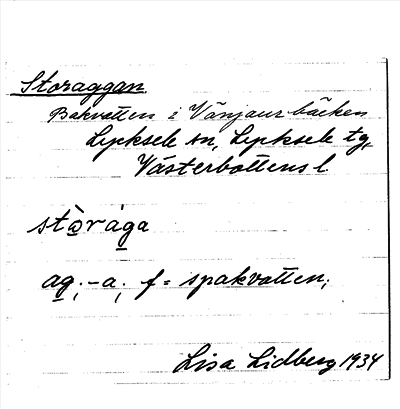 Storaggan
Bakvatten i Vänjaurbäcken
Lycksele sn, Lycksele tg,
Västerbottens l.
stòrága
ag; -a; f = spakvatten;
Lisa Lidberg 1934